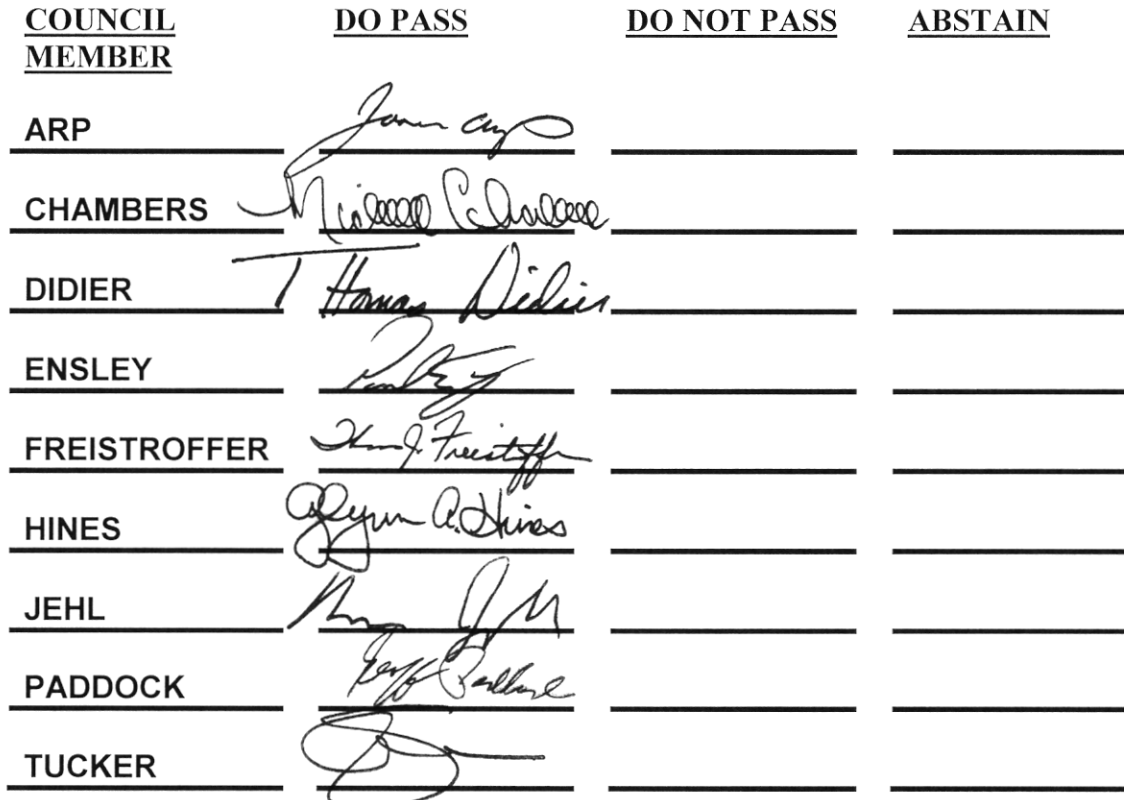 COUNCIL MEMBER DO PASS DO NOT PASS ABSTAIN
ARP
CHAMBERS Michelle Chambers
DIDIER Thomas Didier
ENSLEY
FREISTROFFER Thomas J. Freistroffer
HINES Glynn A. Hines
JEHL
PADDOCK Geoff Paddock
TUCKER